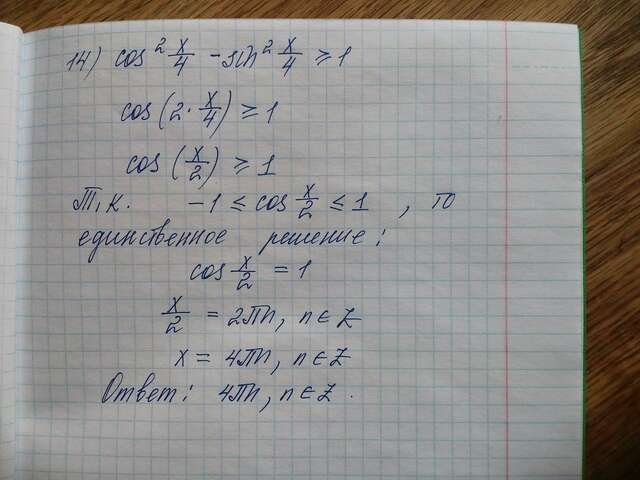 14) cos² x/4 - sin² x/4 ≥ 1
cos(2· x/4) ≥ 1
cos(x/2) ≥ 1
Т,к. -1 ≤ cos x/2 ≤ 1 , то
единственное решение:
cos x/2 = 1
x/2 = 2πn, n ∈ Z
x = 4πn, n ∈ Z
Ответ: 4πn, n ∈ Z.